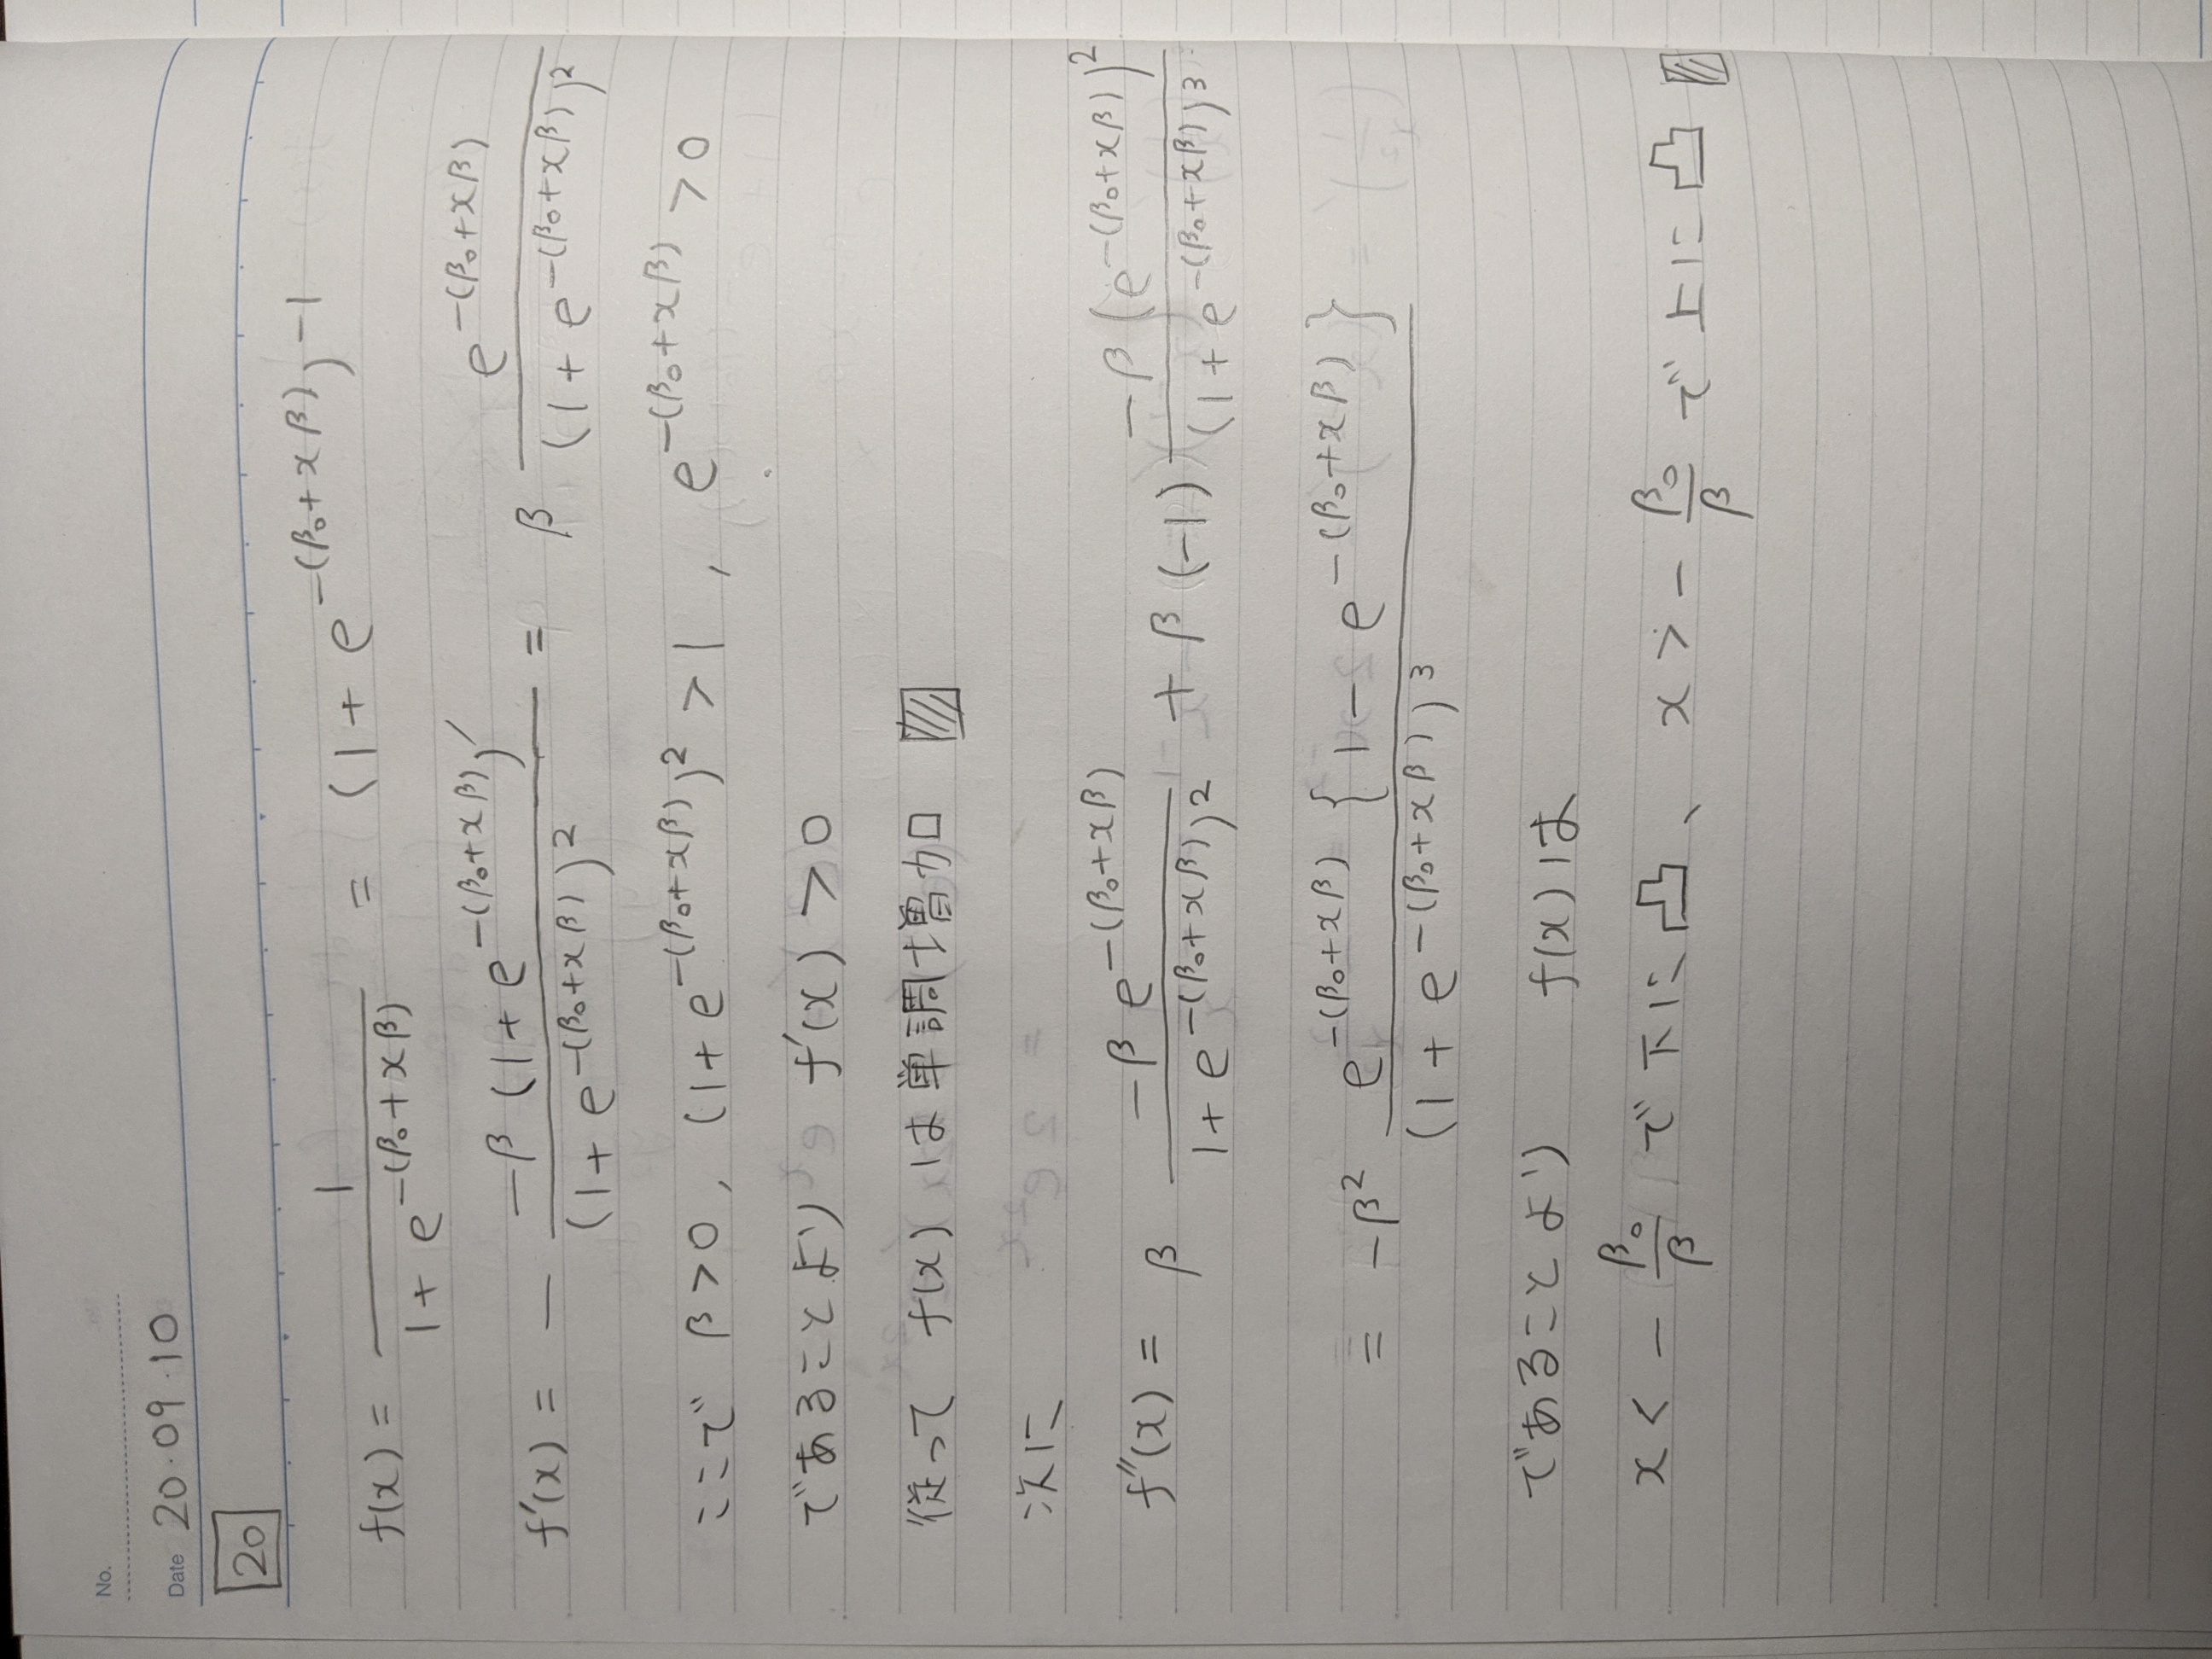 No.
Date 20.09.10
20
f(x) = 1 / (1 + e^{-(β₀+xβ)}) = (1 + e^{-(β₀+xβ)})^{-1}
f'(x) = - (-β (1 + e^{-(β₀+xβ)})') / (1 + e^{-(β₀+xβ)})² = β e^{-(β₀+xβ)} / (1 + e^{-(β₀+xβ)})²
ここで β>0, (1+e^{-(β₀+xβ)})² > 1 , e^{-(β₀+xβ)} > 0
であることより f'(x) > 0
従って f(x) は単調増加
次に
f''(x) = β (-β e^{-(β₀+xβ)}) / 1 + e^{-(β₀+xβ)})² + β (-1) (-β (e^{-(β₀+xβ)})²) / (1 + e^{-(β₀+xβ)})³
= -β² e^{-(β₀+xβ)} { 1 - e^{-(β₀+xβ)} } / (1 + e^{-(β₀+xβ)})³
であることより f(x) は
x < - β₀/β で下に凸、 x > - β₀/β で上に凸